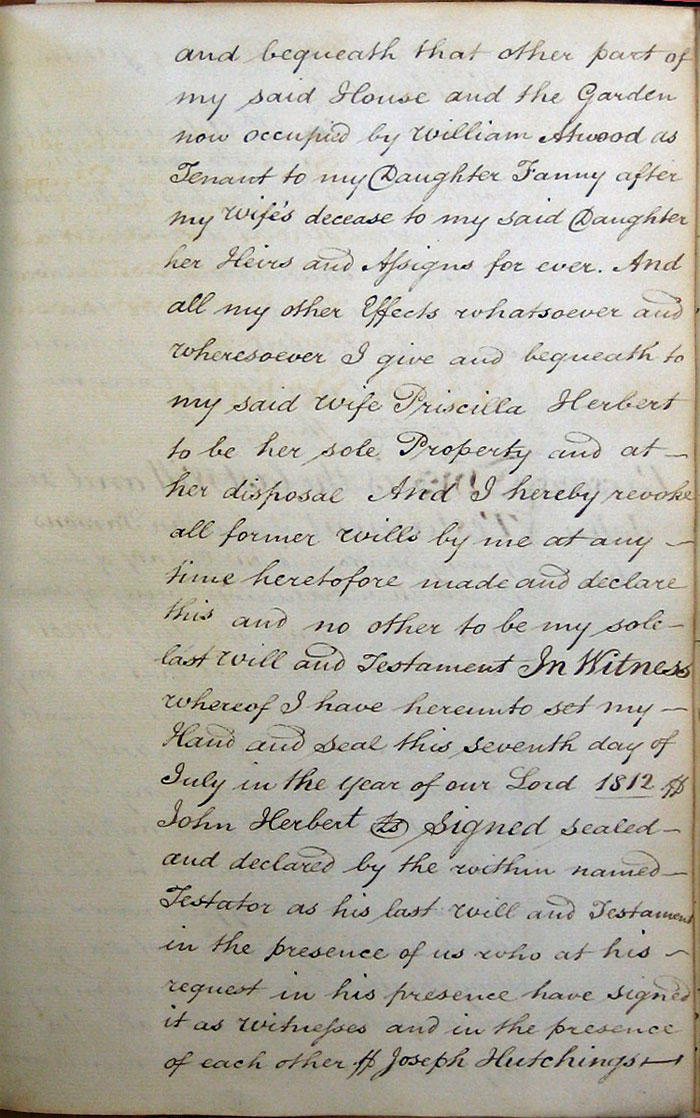 and bequeath that other part of
my said House and the Garden
now occupied by William Atwood as
Tenant to my Daughter Fanny after
my wife's decease to my said Daughter
her Heirs and Assigns for ever. And
all my other Effects whatsoever and
wheresoever I give and bequeath to
my said wife Priscilla Herbert
to be her sole Property and at —
her disposal And I hereby revoke
all former wills by me at any —
time heretofore made and declare
this and no other to be my sole —
last will and Testament In Witness
whereof I have hereunto set my —
Hand and Seal this seventh day of
July in the year of our Lord 1812 //
John Herbert LS Signed sealed —
and declared by the within named —
Testator as his last will and Testament
in the presence of us who at his —
request in his presence have signed
it as witnesses and in the presence
of each other // Joseph Hutchings —